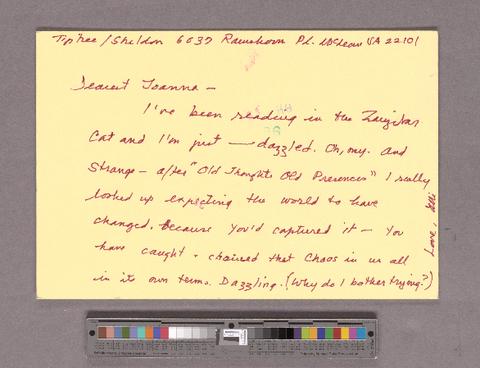 Tiptree/Sheldon 6037 Ramshorn Pl. McLean VA 22101
Dearest Joanna —
I've been reading in the Zanzibar
Cat and I'm just — dazzled. Oh, my. And
Strange — after "Old Thoughts Old Presences" I really
looked up expecting the world to have
changed. Because you'd captured it — You
have caught + chained that Chaos in us all
in its own terms. Dazzling. (Why do I bother trying?)
Love, Alli